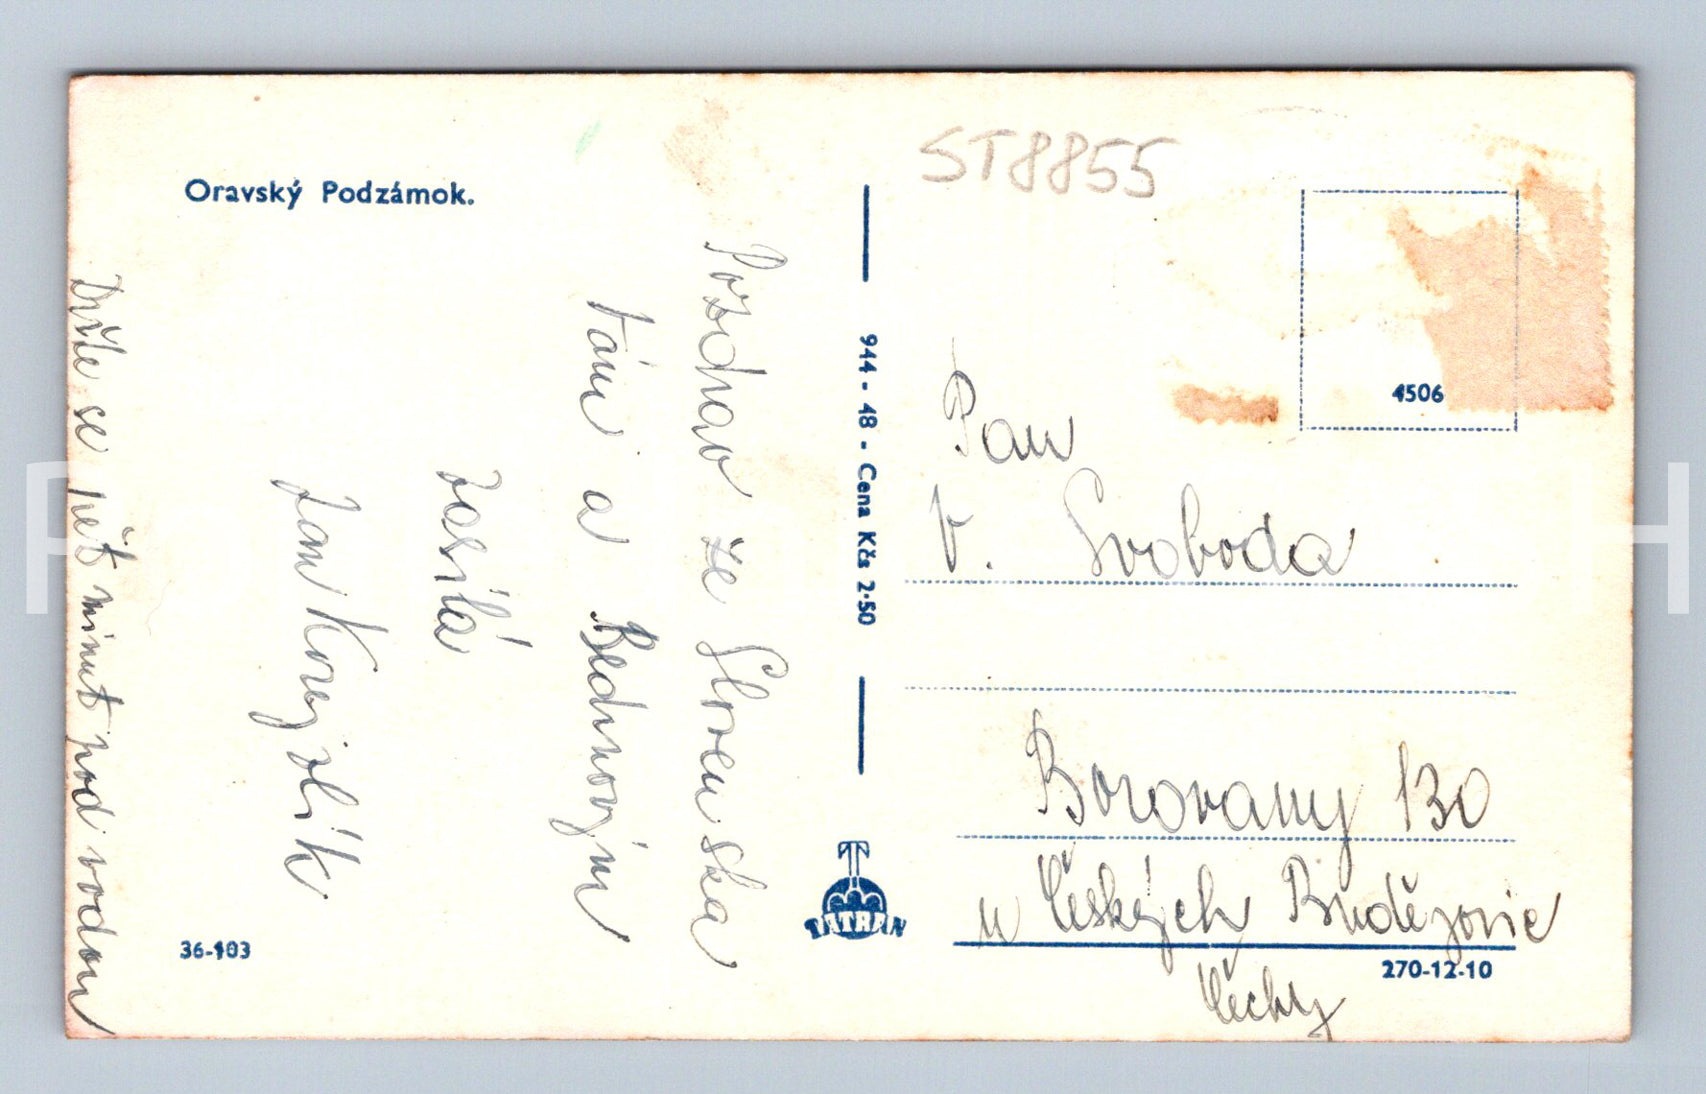 Oravský Podzámok.
Pozdrav ze Slovenska
Vám a Bednovým
zasílá
Jan
Držte se pět minut pod vodou
36-103
944 - 48 - Cena Kčs 2·50
TATRAN
ST8855
4506
Pan
V. Svoboda
Borovany 130
u Českých Budějovic
Čechy
270-12-10